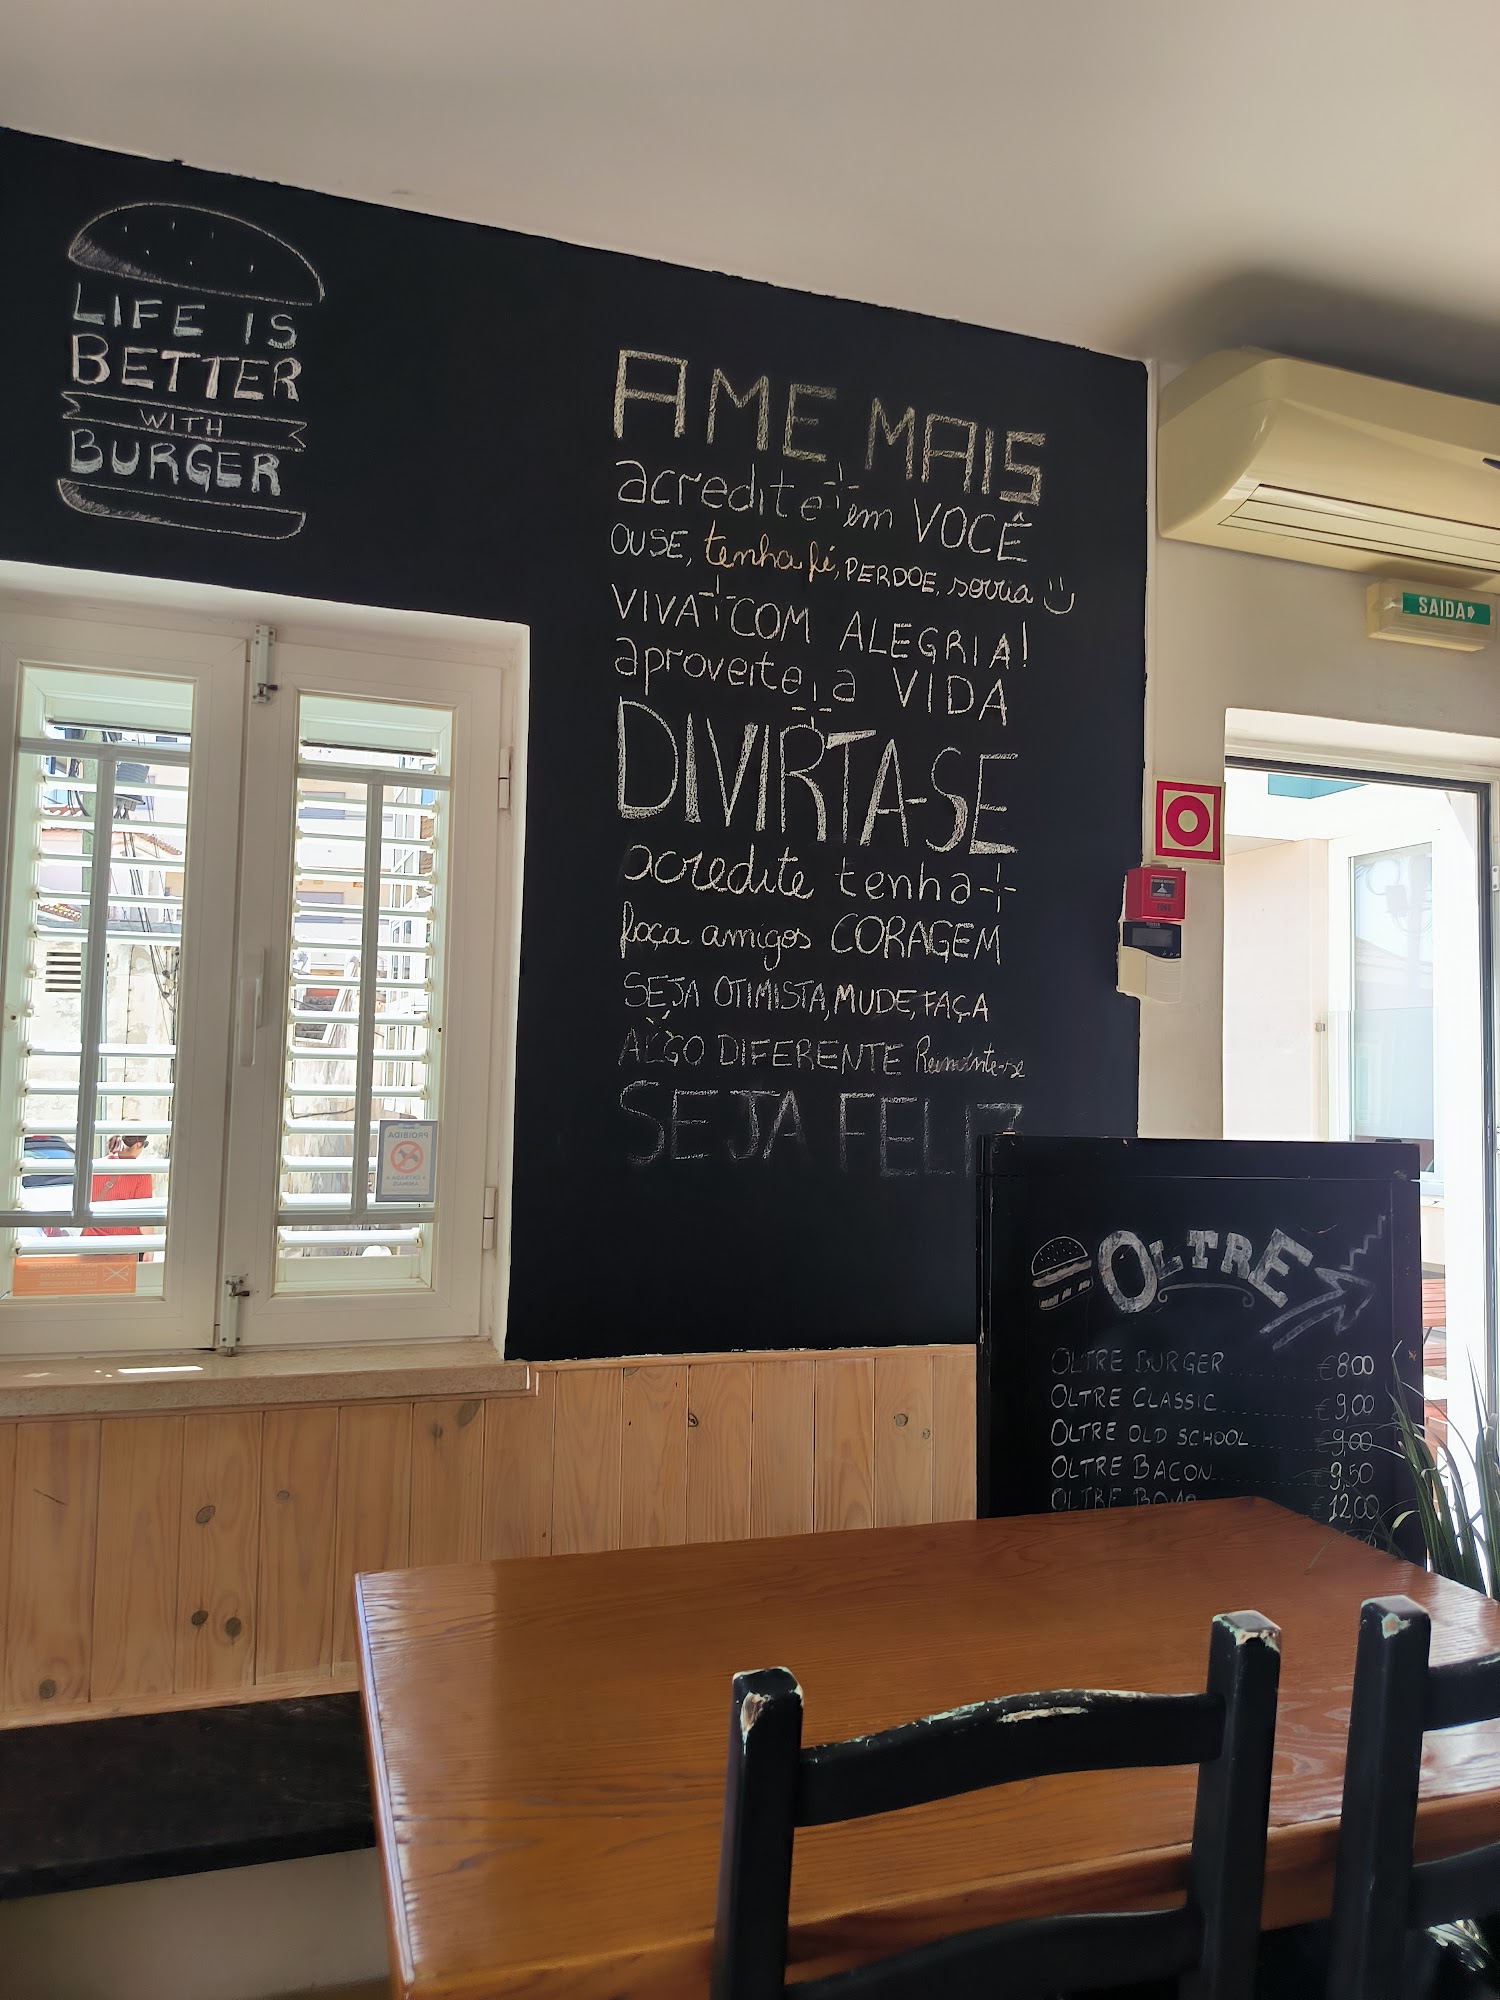 LIFE IS
BETTER
WITH
BURGER
AME MAIS
acredite em VOCÊ
OUSE, tenha fé, PERDOE, sorria
VIVA COM ALEGRIA!
aproveite a VIDA
DIVIRTA-SE
acredite tenha +
faça amigos CORAGEM
SEJA OTIMISTA, MUDE, FAÇA
ALGO DIFERENTE Reinvente-se
SEJA FELIZ
SAÍDA
PROIBIDA
A ENTRADA A
ANIMAIS
OLTRE
OLTRE BURGER €8,00
OLTRE CLASSIC €9,00
OLTRE OLD SCHOOL €9,00
OLTRE BACON €9,50
OLTRE €12,00